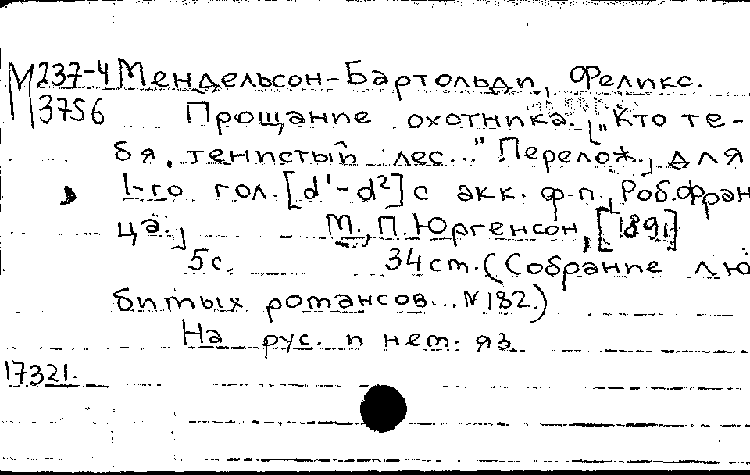 М 237-4 Мендельсон-Бартольди, Феликс.
3756 Прощание охотника. „Кто те-
бя, тенистый лес..." Перелож. для
1-го гол. [d¹-d²] с акк. ф-п., Роб. Фран
ца.] М., П. Юргенсон, [1891]
5 с. 34 см. (Собрание лю
бимых романсов... N 182.)
На рус. и нем. яз.
17321.